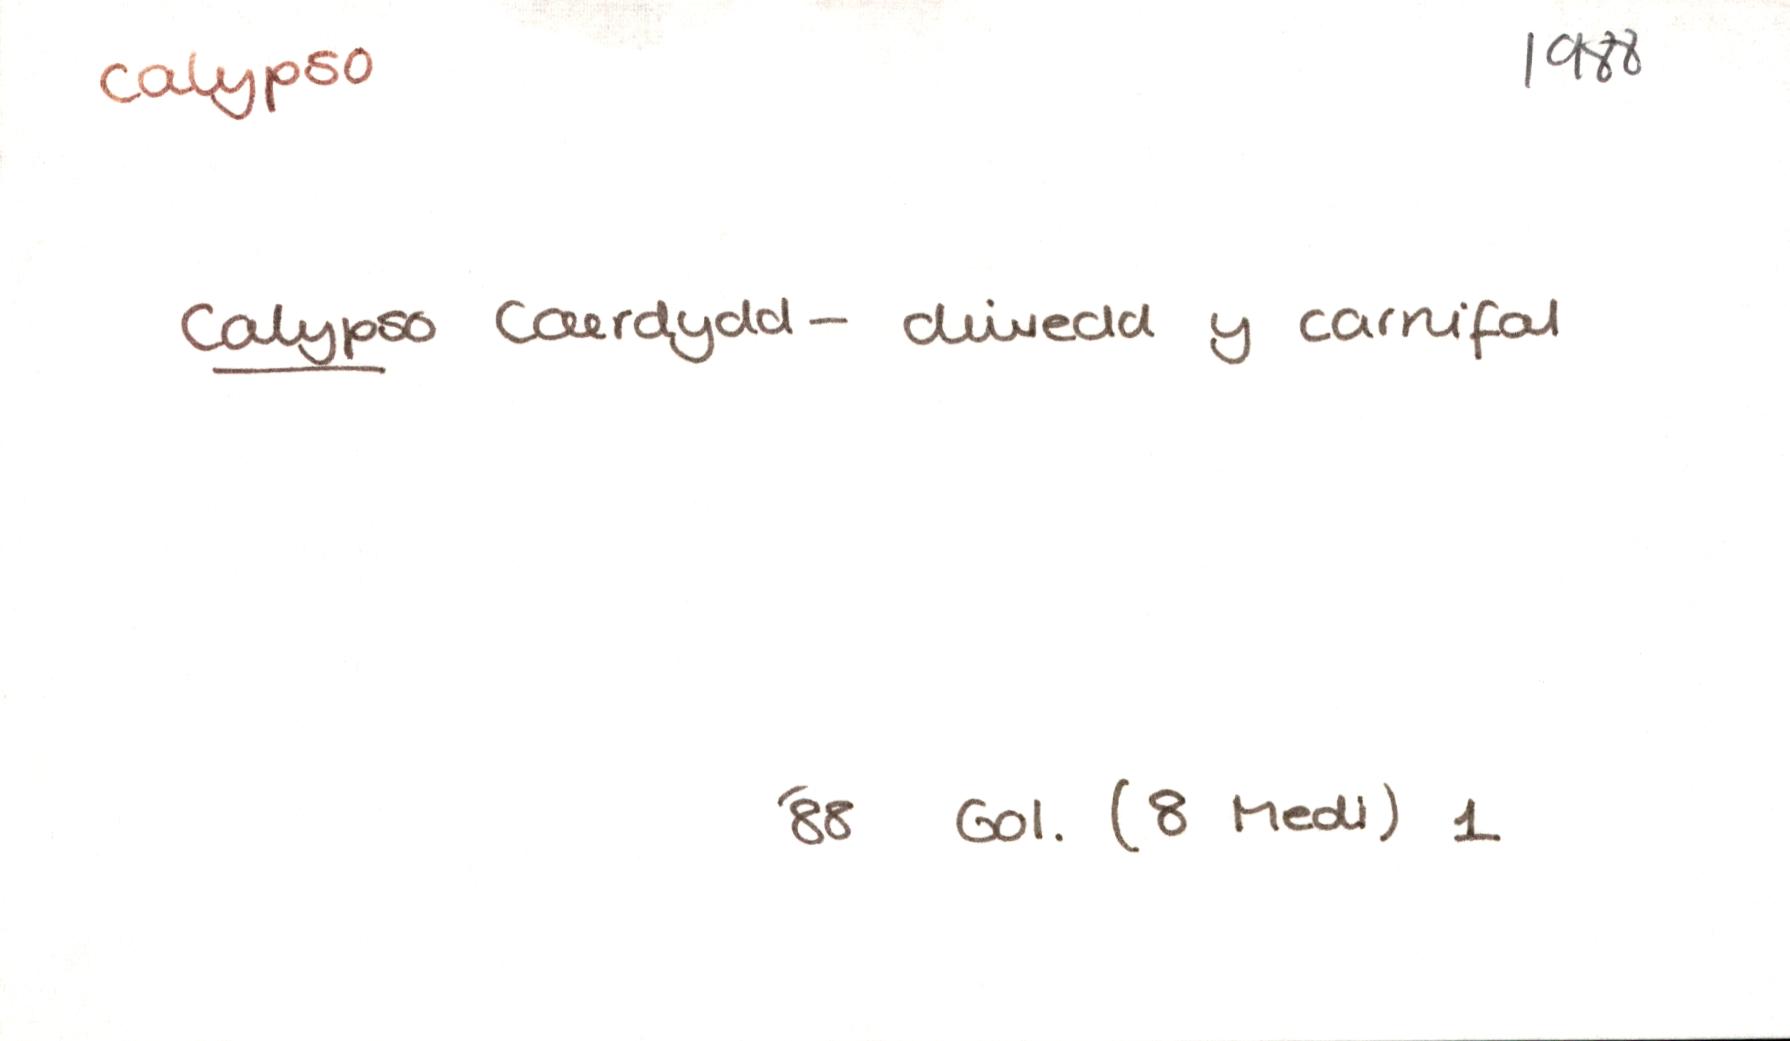 calypso 1988
Calypso Caerdydd – diwedd y carnifal
'88 Gol. (8 Medi) 1